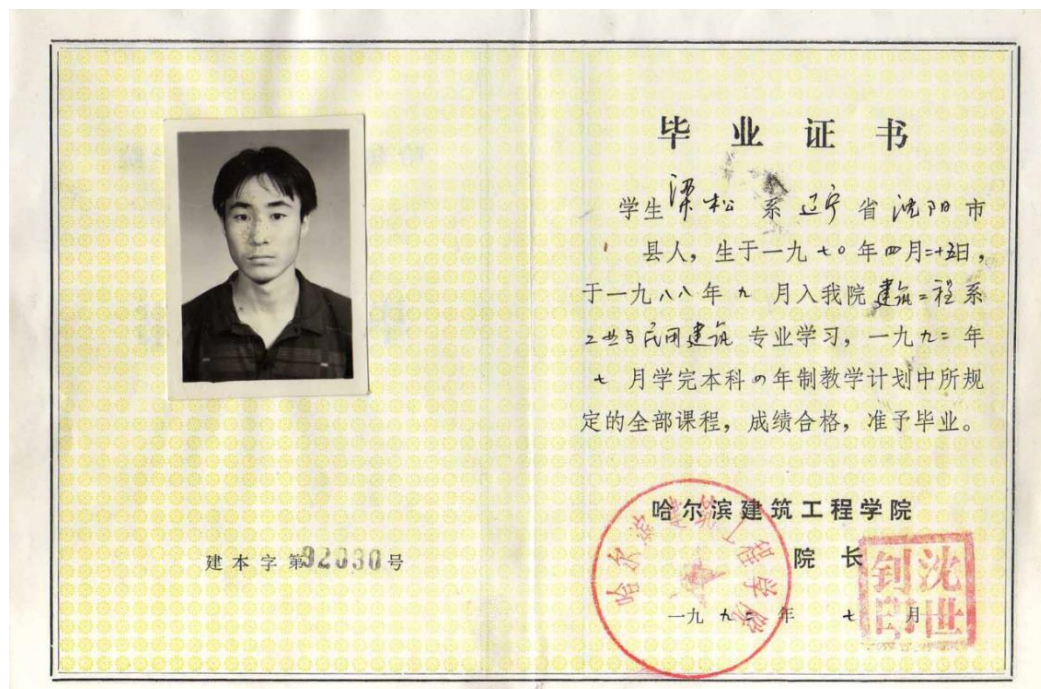 毕业证书
学生梁松系辽宁省沈阳市
县人，生于一九七〇年四月二十五日，
于一九八八年九月入我院建筑工程系
工业与民用建筑专业学习，一九九二年
七月学完本科四年制教学计划中所规
定的全部课程，成绩合格，准予毕业。
哈尔滨建筑工程学院
院长
沈世钊印
一九九二年七月
哈尔滨建筑工程学院
建本字第92030号